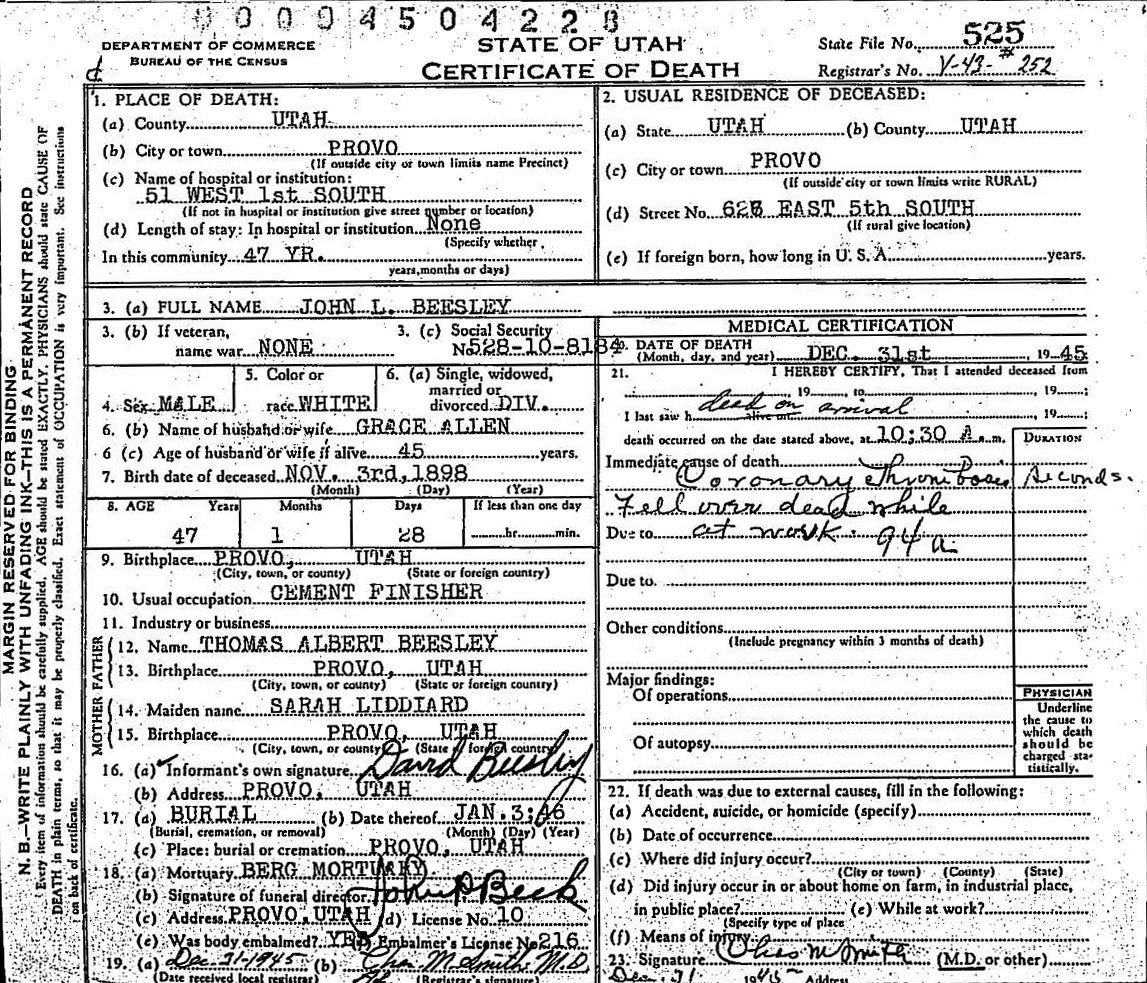 00004504228
DEPARTMENT OF COMMERCE
BUREAU OF THE CENSUS
STATE OF UTAH
CERTIFICATE OF DEATH
State File No. 525
Registrar's No. V-43-#252
MARGIN RESERVED FOR BINDING
N. B.—WRITE PLAINLY WITH UNFADING INK—THIS IS A PERMANENT RECORD
Every item of information should be carefully supplied. AGE should be stated EXACTLY. PHYSICIANS should state CAUSE OF
DEATH in plain terms, so that it may be properly classified. Exact statement of OCCUPATION is very important. See instructions
on back of certificate.
1. PLACE OF DEATH:
(a) County UTAH
(b) City or town PROVO
(If outside city or town limits name Precinct)
(c) Name of hospital or institution:
51 WEST 1st SOUTH
(If not in hospital or institution give street number or location)
(d) Length of stay: In hospital or institution None
(Specify whether
In this community 47 YR.
years, months or days)
2. USUAL RESIDENCE OF DECEASED:
(a) State UTAH (b) County UTAH
(c) City or town PROVO
(If outside city or town limits write RURAL)
(d) Street No. EAST 5th SOUTH
(If rural give location)
(e) If foreign born, how long in U. S. A. years.
3. (a) FULL NAME JOHN L. BEESLEY
3. (b) If veteran, 3. (c) Social Security
name war NONE No. 528-10-8184
4. Sex MALE
5. Color or
race WHITE
6. (a) Single, widowed,
married or
divorced DIV.
6. (b) Name of husband or wife GRACE ALLEN
6 (c) Age of husband or wife if alive 45 years.
7. Birth date of deceased NOV. 3rd, 1898
(Month) (Day) (Year)
8. AGE Years Months Days If less than one day
47 1 28 hr. min.
9. Birthplace PROVO, UTAH
(City, town, or county) (State or foreign country)
10. Usual occupation CEMENT FINISHER
11. Industry or business
FATHER
12. Name THOMAS ALBERT BEESLEY
13. Birthplace PROVO, UTAH
(City, town, or county) (State or foreign country)
MOTHER
14. Maiden name SARAH LIDDIARD
15. Birthplace PROVO, UTAH
(City, town, or county) (State or foreign country)
16. (a) Informant's own signature David Beesley
(b) Address PROVO, UTAH
17. (a) BURIAL (b) Date thereof JAN. 3,
(Burial, cremation, or removal) (Month) (Day) (Year)
(c) Place: burial or cremation PROVO, UTAH
18. (a) Mortuary BERG MORTUARY
(b) Signature of funeral director John P Beck
(c) Address PROVO, UTAH (d) License No. 10
(e) Was body embalmed? YES Embalmer's License No. 216
19. (a) Dec-31-1945 (b) Chas. M. Smith M.D.
(Date received local registrar) (Registrar's signature)
MEDICAL CERTIFICATION
20. DATE OF DEATH
(Month, day, and year) DEC. 31st, 1945
21. I HEREBY CERTIFY, That I attended deceased from
19 , to 19 ;
I last saw h alive on dead on arrival , 19 ;
death occurred on the date stated above, at 10:30 A. m.
DURATION
Immediate cause of death
Coronary Thrombosis Seconds.
Fell over dead while
Due to at work. 94a
Due to
Other conditions
(Include pregnancy within 3 months of death)
Major findings:
Of operations
Of autopsy
PHYSICIAN
Underline
the cause to
which death
should be
charged sta-
tistically.
22. If death was due to external causes, fill in the following:
(a) Accident, suicide, or homicide (specify)
(b) Date of occurrence
(c) Where did injury occur?
(City or town) (County) (State)
(d) Did injury occur in or about home on farm, in industrial place,
in public place? (e) While at work?
(Specify type of place
(f) Means of injury
23. Signature Chas M Smith (M.D. or other)
Dec. 31 1945 Address